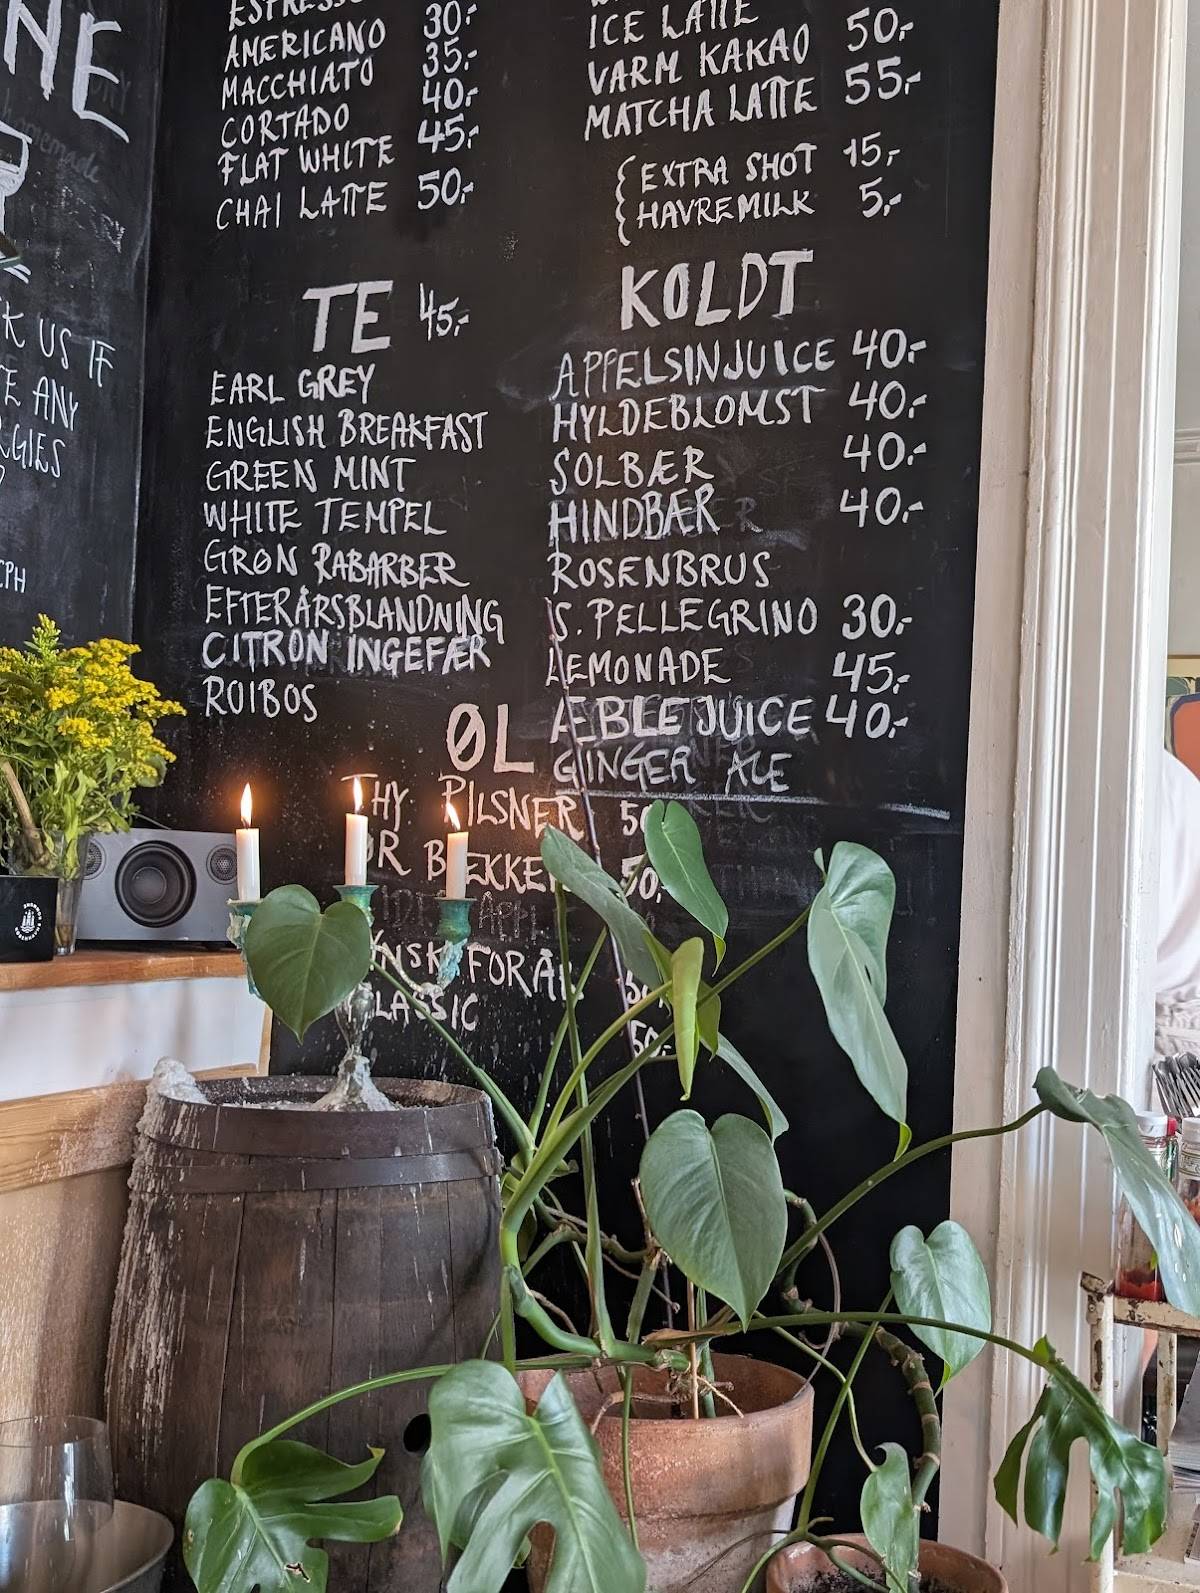 NE
homemade
K US IF
E ANY
GIES
CPH
ESPRESSO
AMERICANO 30,-
MACCHIATO 35,-
CORTADO 40,-
FLAT WHITE 45,-
CHAI LATTE 50,-
ICE LATTE
VARM KAKAO 50,-
MATCHA LATTE 55,-
EXTRA SHOT 15,-
HAVREMILK 5,-
TE 45,-
EARL GREY
ENGLISH BREAKFAST
GREEN MINT
WHITE TEMPEL
GRØN RABARBER
EFTERÅRSBLANDNING
CITRON INGEFÆR
ROIBOS
KOLDT
APPELSINJUICE 40,-
HYLDEBLOMST 40,-
SOLBÆR 40,-
HINDBÆR 40,-
ROSENBRUS
S. PELLEGRINO 30,-
LEMONADE 45,-
ÆBLEJUICE 40,-
GINGER ALE
ØL
THY PILSNER 50
ØR BÆKKE 50,-
NSK FORÅR
CLASSIC 50,-